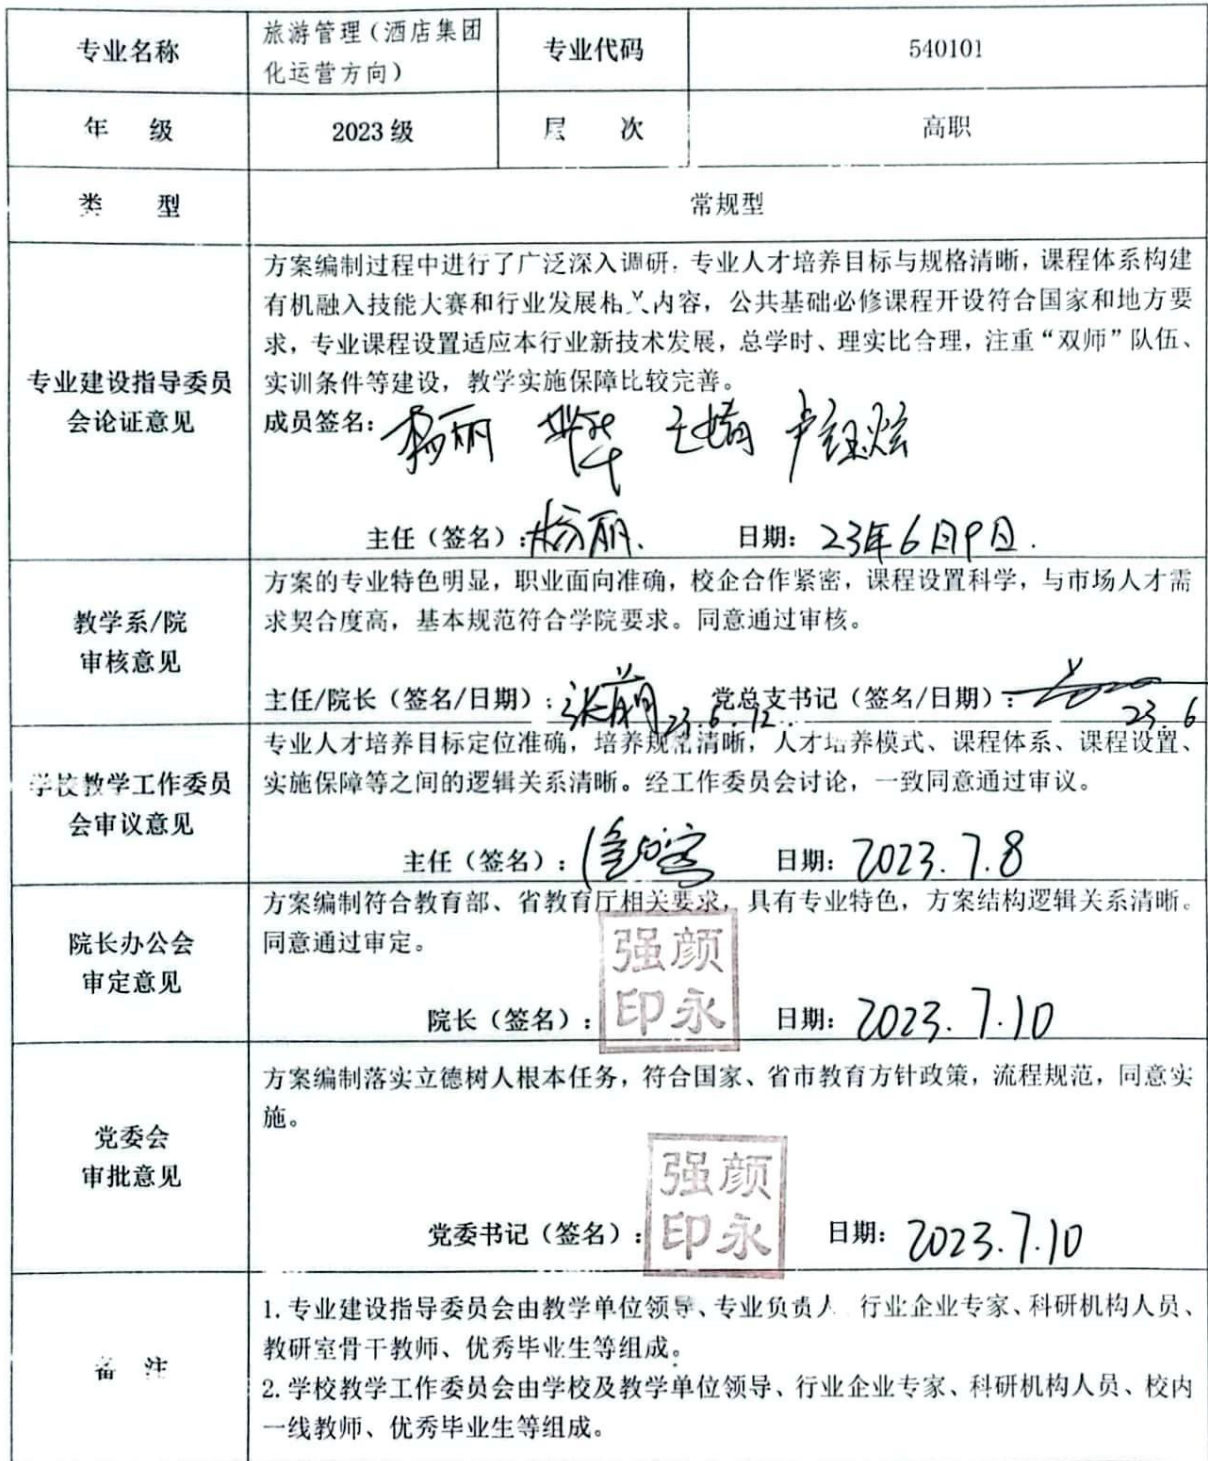 专业名称
旅游管理（酒店集团
化运营方向）
专业代码
540101
年 级
2023 级
层 次
高职
类 型
常规型
专业建设指导委员
会论证意见
方案编制过程中进行了广泛深入调研，专业人才培养目标与规格清晰，课程体系构建
有机融入技能大赛和行业发展相关内容，公共基础必修课程开设符合国家和地方要
求，专业课程设置适应本行业新技术发展，总学时、理实比合理，注重“双师”队伍、
实训条件等建设，教学实施保障比较完善。
成员签名：杨丽 王婧 卢钰炫
主任（签名）：杨丽. 日期：23年6月9日.
教学系/院
审核意见
方案的专业特色明显，职业面向准确，校企合作紧密，课程设置科学，与市场人才需
求契合度高，基本规范符合学院要求。同意通过审核。
主任/院长（签名/日期）： 23.6.12. 党总支书记（签名/日期）： 23.6
学校教学工作委员
会审议意见
专业人才培养目标定位准确，培养规格清晰，人才培养模式、课程体系、课程设置、
实施保障等之间的逻辑关系清晰。经工作委员会讨论，一致同意通过审议。
主任（签名）： 日期：2023.7.8
院长办公会
审定意见
方案编制符合教育部、省教育厅相关要求，具有专业特色，方案结构逻辑关系清晰。
同意通过审定。
院长（签名）：颜永强印 日期：2023.7.10
党委会
审批意见
方案编制落实立德树人根本任务，符合国家、省市教育方针政策，流程规范，同意实
施。
党委书记（签名）：颜永强印 日期：2023.7.10
备 注
1. 专业建设指导委员会由教学单位领导、专业负责人、行业企业专家、科研机构人员、
教研室骨干教师、优秀毕业生等组成。
2. 学校教学工作委员会由学校及教学单位领导、行业企业专家、科研机构人员、校内
一线教师、优秀毕业生等组成。